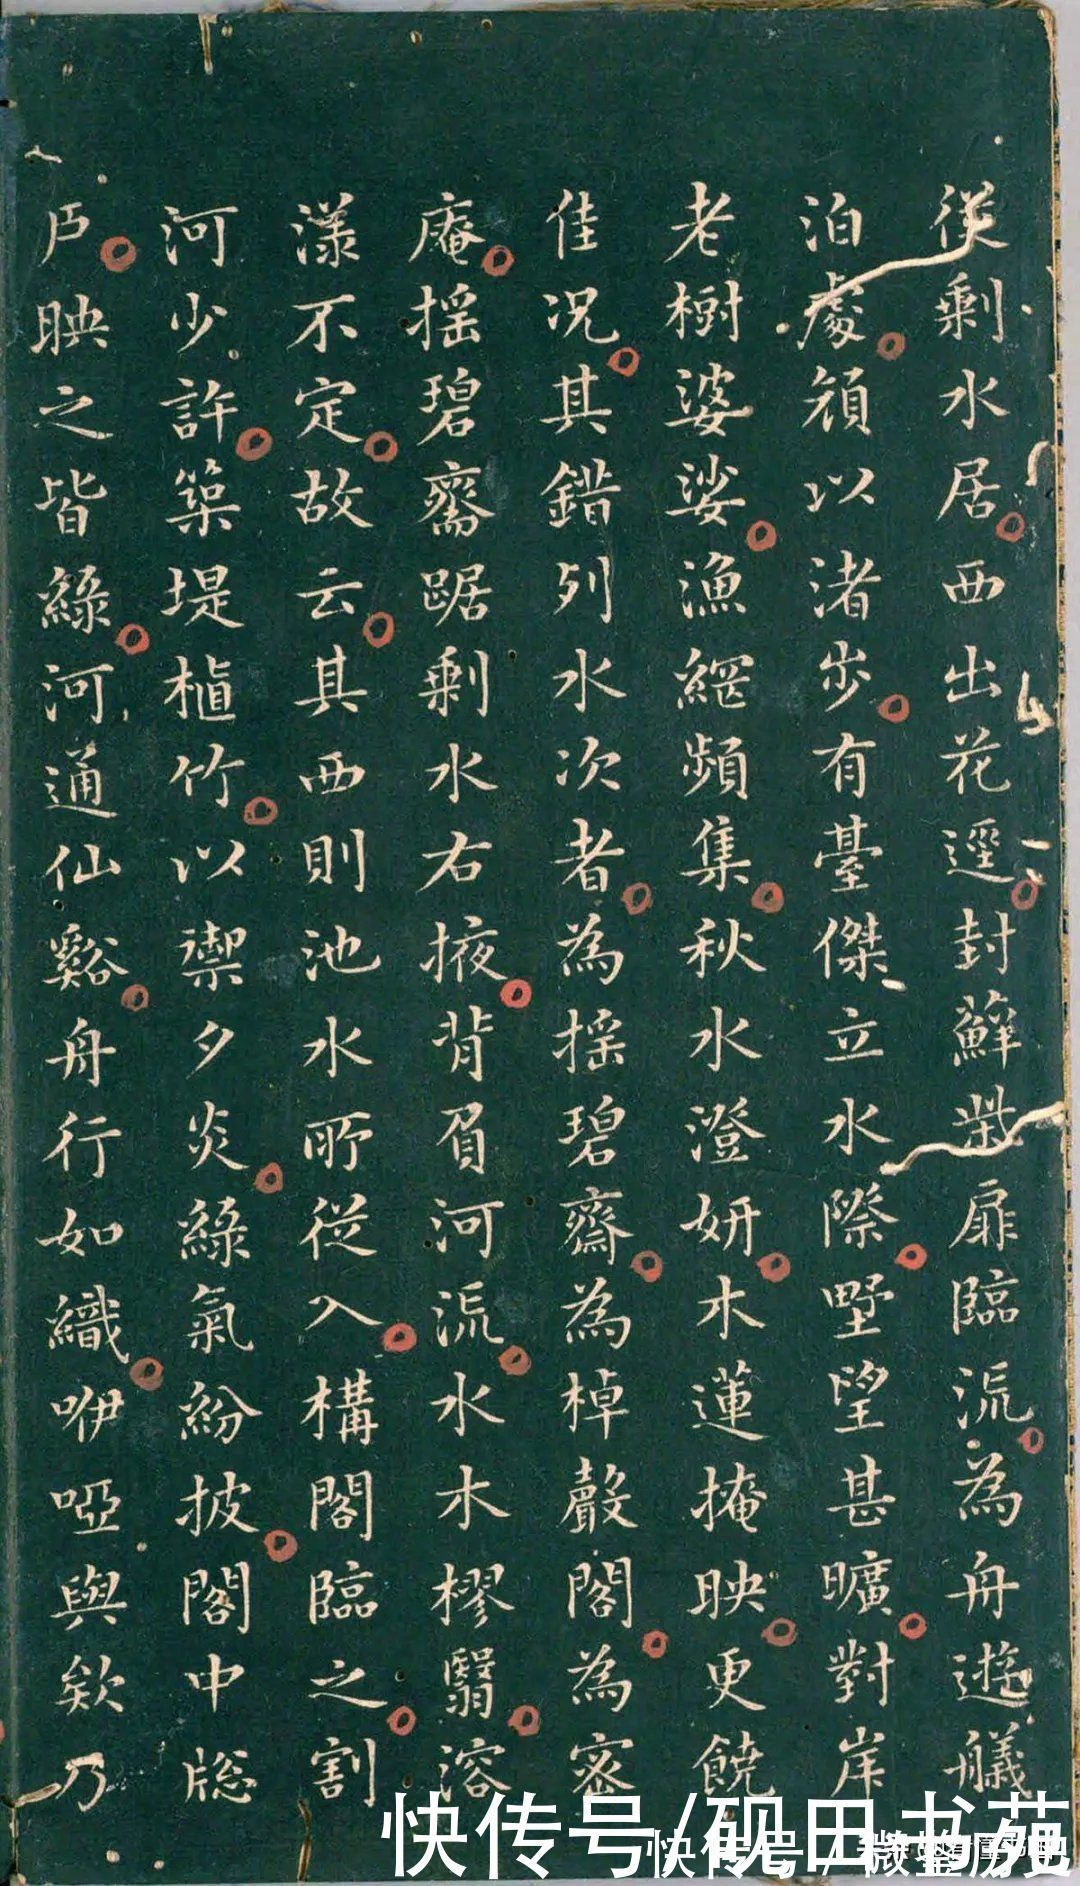 從剩水居西出花逕封蘚柴扉臨流為舟遊艤
泊處頎以渚步有臺傑立水際墅望甚曠對岸
老樹婆娑漁網頻集秋水澄妍木蓮掩映更饒
佳況其錯列水次者為搖碧齋為棹聲閣為密
庵搖碧齋踞剩水右掖背負河流水木樛翳溶
漾不定故云其西則池水所從入構閣臨之割
河少許築堤植竹以禦夕炎綠氣紛披閣中牕
戶映之皆綠河通仙谿舟行如織咿啞與欸乃
快传号/砚田书苑
快传号 / 微鉴历史